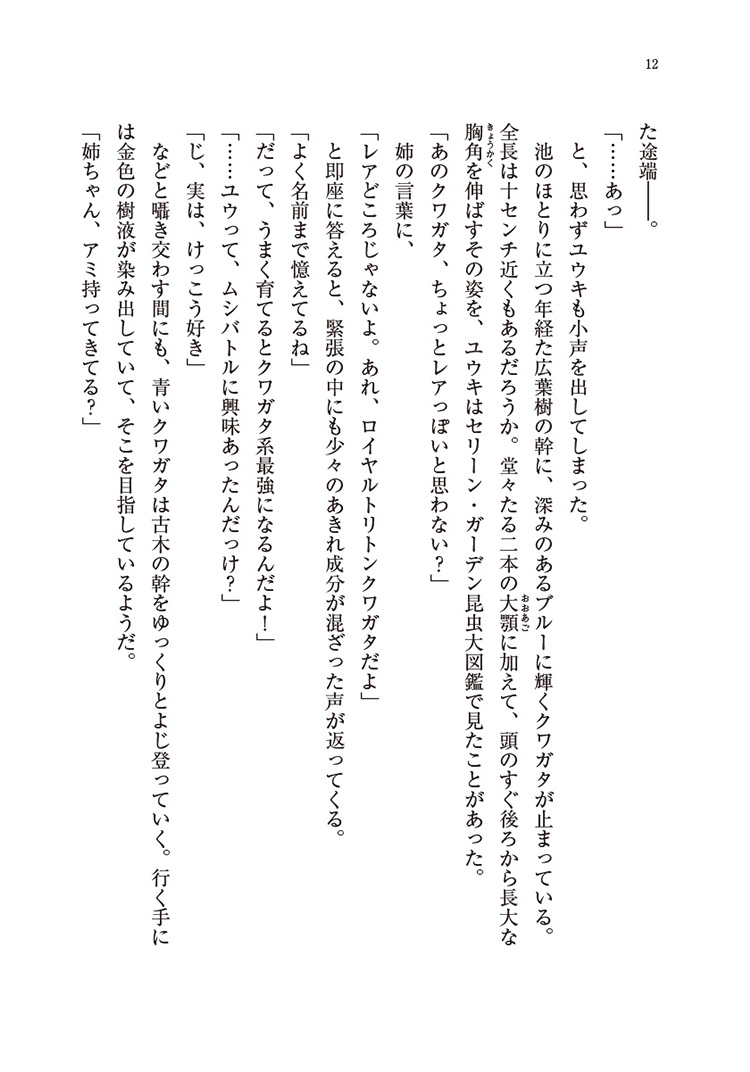 12
た途端――。
「……あっ」
と、思わずユウキも小声を出してしまった。
池のほとりに立つ年経た広葉樹の幹に、深みのあるブルーに輝くクワガタが止まっている。
全長は十センチ近くもあるだろうか。堂々たる二本の大顎おおあごに加えて、頭のすぐ後ろから長大な
胸角きょうかくを伸ばすその姿を、ユウキはセリーン・ガーデン昆虫大図鑑で見たことがあった。
「あのクワガタ、ちょっとレアっぽいと思わない？」
姉の言葉に、
「レアどころじゃないよ。あれ、ロイヤルトリトンクワガタだよ」
と即座に答えると、緊張の中にも少々のあきれ成分が混ざった声が返ってくる。
「よく名前まで憶えてるね」
「だって、うまく育てるとクワガタ系最強になるんだよ！」
「……ユウって、ムシバトルに興味あったんだっけ？」
「じ、実は、けっこう好き」
などと囁き交わす間にも、青いクワガタは古木の幹をゆっくりとよじ登っていく。行く手に
は金色の樹液が染み出していて、そこを目指しているようだ。
「姉ちゃん、アミ持ってきてる？」